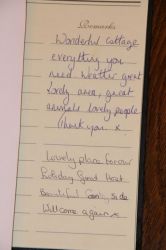 Remarks
Wonderful cottage
everything you
need. Weather great
lovely area, great
animals lovely people
Thank you x
Lovely place for our
Holiday Great Heat
Beautiful Country Side
Will come again x